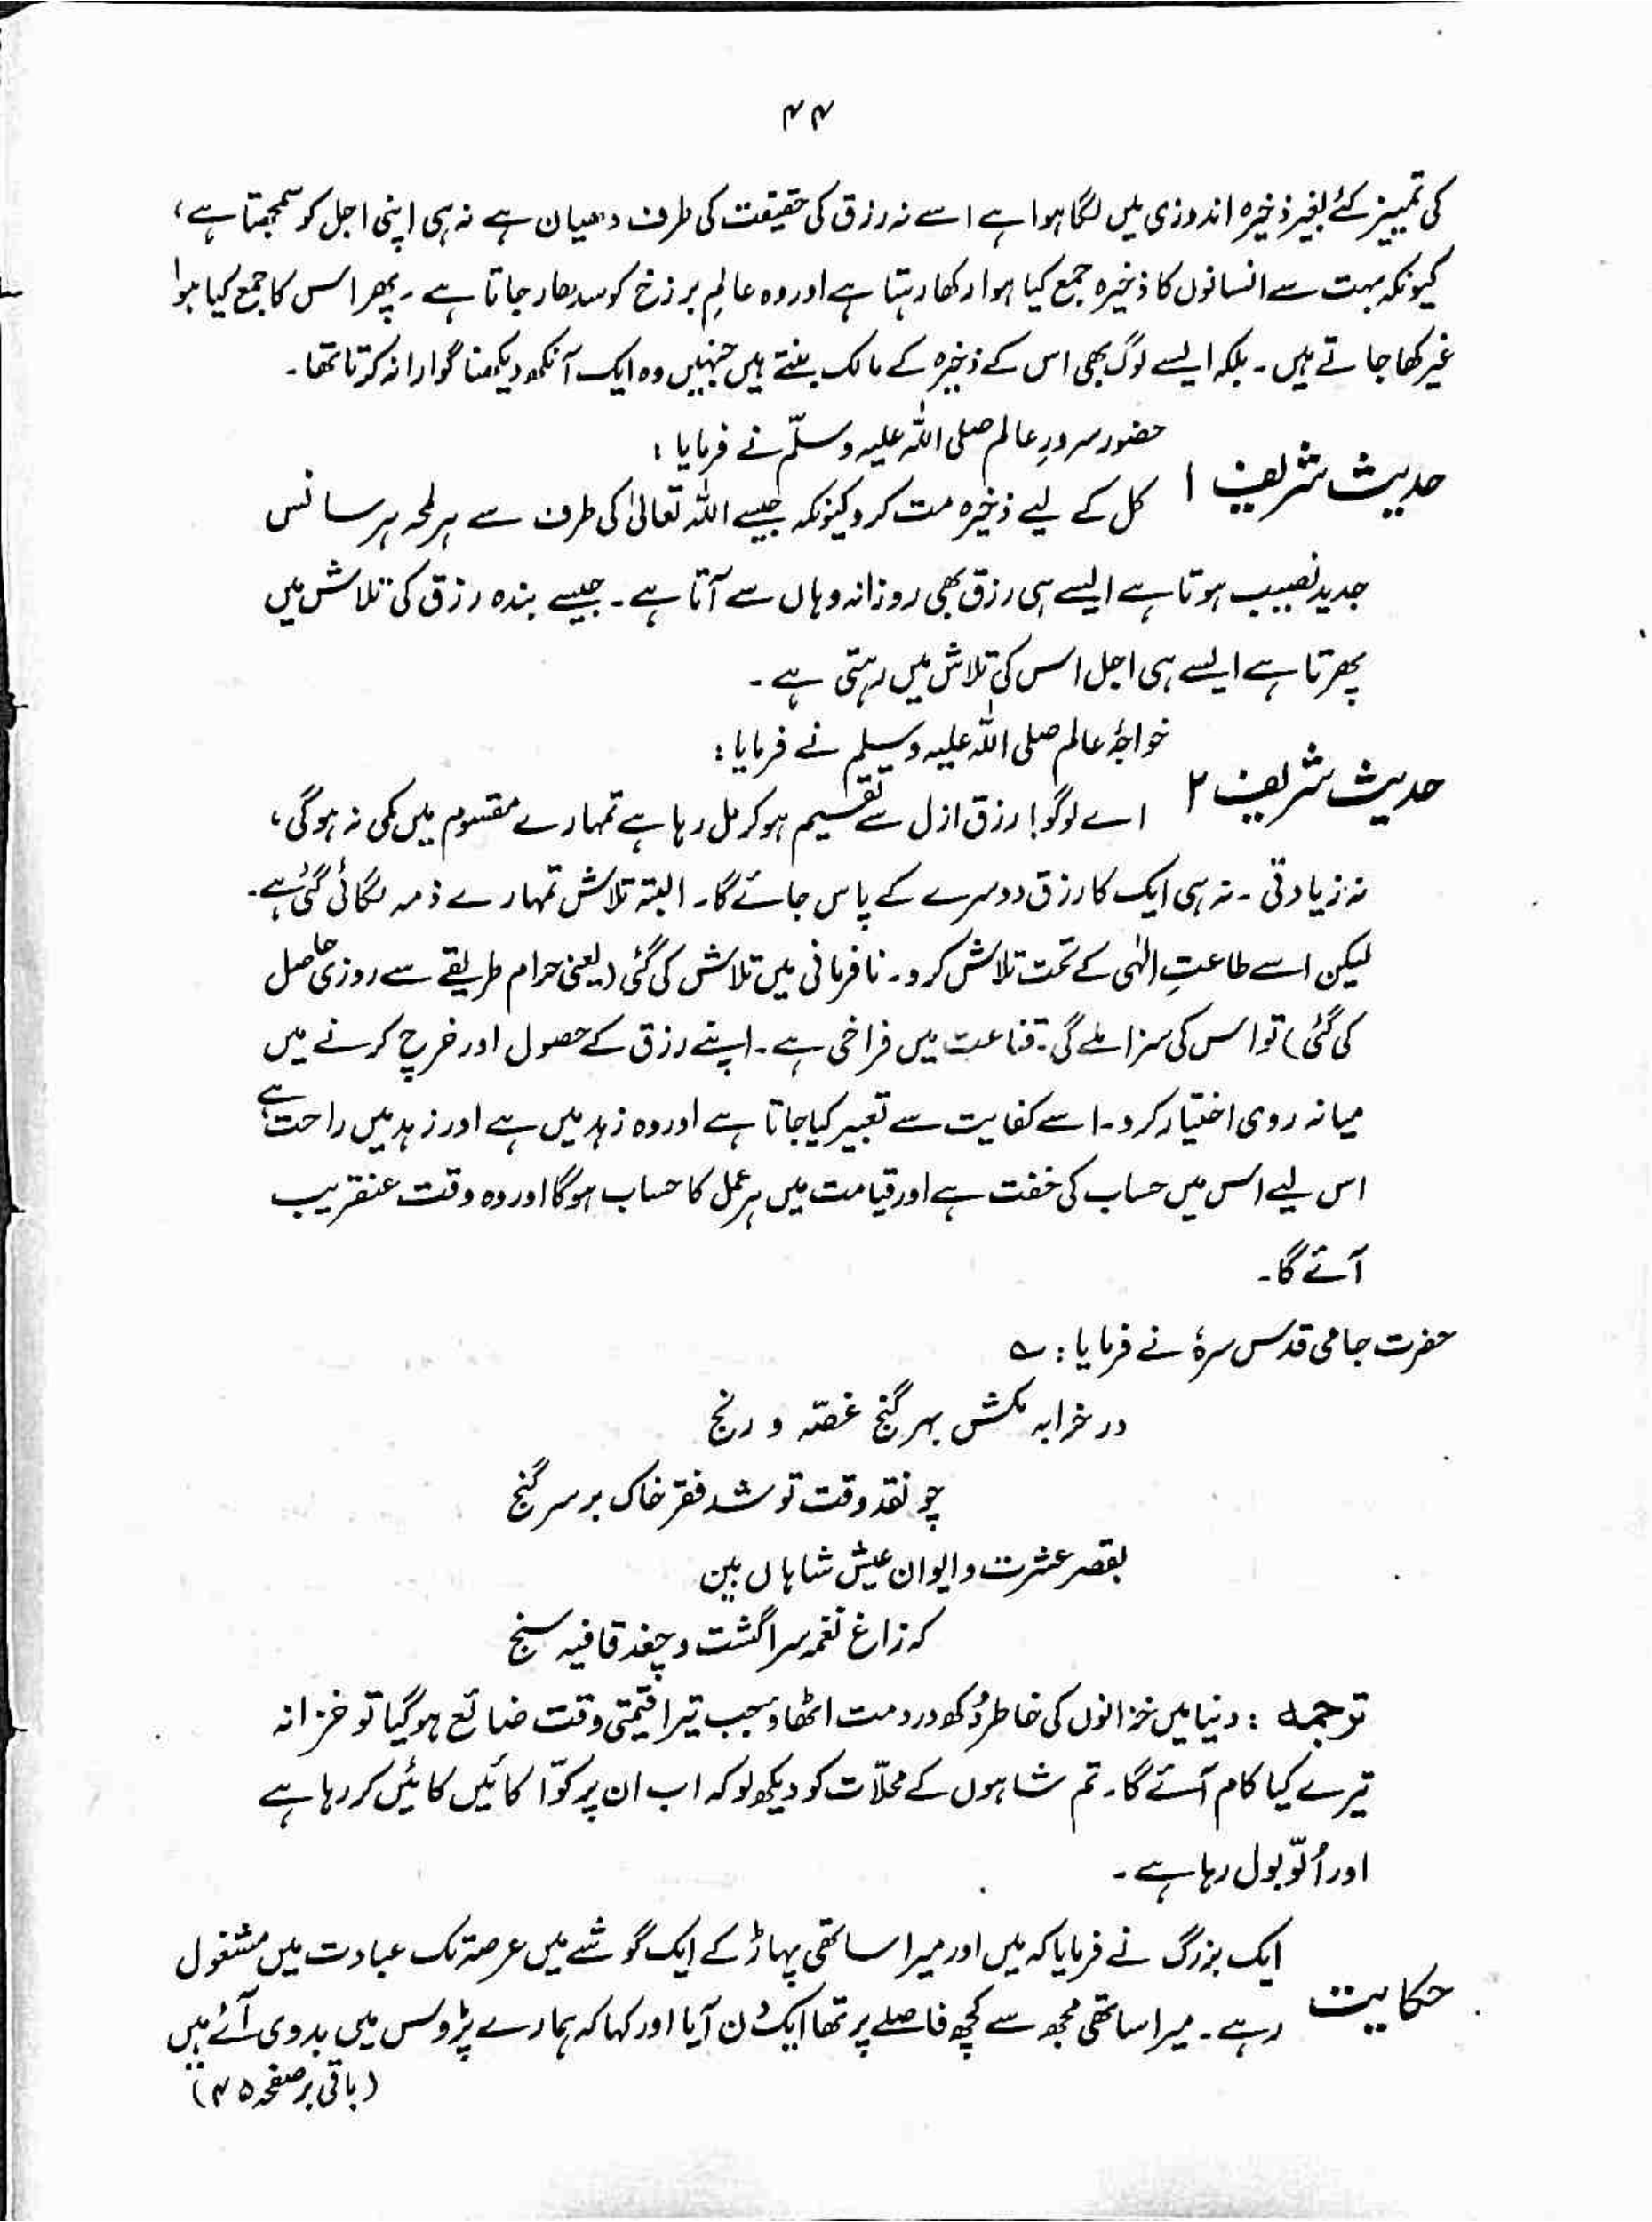 ۴۴
کی تمییز کئے بغیر ذخیرہ اندوزی میں لگا ہوا ہے اسے نہ رزق کی حقیقت کی طرف دھیان ہے نہ ہی اپنی اجل کو سمجھتا ہے،
کیونکہ بہت سے انسانوں کا ذخیرہ جمع کیا ہوا رکھا رہتا ہے اور وہ عالمِ برزخ کو سدھار جاتا ہے ۔ پھر اس کا جمع کیا ہوا
غیر کھا جاتے ہیں ۔ بلکہ ایسے لوگ بھی اس کے ذخیرہ کے مالک بنتے ہیں جنہیں وہ ایک آنکھ دیکھنا گوارا نہ کرتا تھا ۔
حضور سرورِ عالم صلی اللہ علیہ وسلّم نے فرمایا :
حدیث شریف ۱ کل کے لیے ذخیرہ مت کرو کیونکہ جیسے اللہ تعالیٰ کی طرف سے ہر لمحہ ہر سانس
جدید نصیب ہوتا ہے ایسے ہی رزق بھی روزانہ وہاں سے آتا ہے ۔ جیسے بندہ رزق کی تلاش میں
پھرتا ہے ایسے ہی اجل اس کی تلاش میں رہتی ہے ۔
خواجۂ عالم صلی اللہ علیہ وسلم نے فرمایا :
حدیث شریف ۲ اے لوگو! رزق ازل سے تقسیم ہو کر مل رہا ہے تمہارے مقسوم میں کمی نہ ہوگی،
نہ زیادتی ۔ نہ ہی ایک کا رزق دوسرے کے پاس جائے گا ۔ البتہ تلاش تمہارے ذمہ لگائی گئی ہے ۔
لیکن اسے طاعتِ الٰہی کے تحت تلاش کرو ۔ نافرمانی میں تلاش کی گئی (یعنی حرام طریقے سے روزی حاصل
کی گئی) تو اس کی سزا ملے گی ۔ قناعت میں فراخی ہے ۔ اپنے رزق کے حصول اور خرچ کرنے میں
میانہ روی اختیار کرو ۔ اسے کفایت سے تعبیر کیا جاتا ہے اور وہ زہد میں ہے اور زہد میں راحت ہے
اس لیے اس میں حساب کی خفت ہے اور قیامت میں ہر عمل کا حساب ہوگا اور وہ وقت عنقریب
آئے گا ۔
حضرت جامی قدس سرہٗ نے فرمایا : ؎
در خرابہ مکش بہر گنج غصّہ و رنج
چو نقد وقت تو شد فقر خاک بر سر گنج
بقصر عشرت و ایوان عیش شاہاں بین
کہ زاغ نغمہ سرا گشت و چغد قافیہ سنج
ترجمہ : دنیا میں خزانوں کی خاطر دُکھ درد مت اٹھاؤ جب تیرا قیمتی وقت ضائع ہوگیا تو خزانہ
تیرے کیا کام آئے گا ۔ تم شاہوں کے محلّات کو دیکھ لو کہ اب ان پر کوّا کائیں کائیں کر رہا ہے
اور اُلّو بول رہا ہے ۔
ایک بزرگ نے فرمایا کہ میں اور میرا ساتھی پہاڑ کے ایک گوشے میں عرصہ تک عبادت میں مشغول
حکایت رہے ۔ میرا ساتھی مجھ سے کچھ فاصلے پر تھا ایک دن آیا اور کہا کہ ہمارے پڑوس میں بدوی آئے ہیں
(باقی بر صفحہ ۴۵)